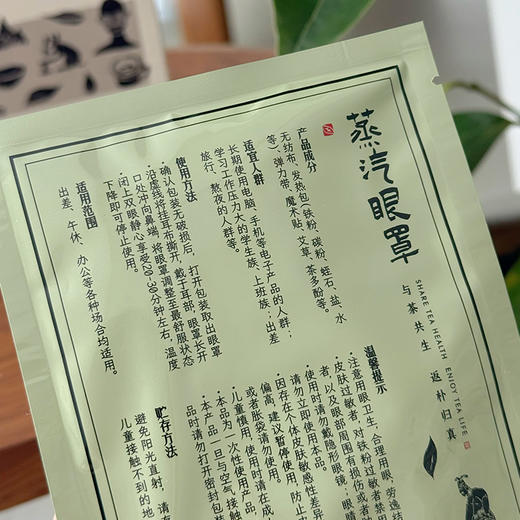 蒸汽眼罩
SHARE TEA HEALTH ENJOY TEA LIFE
与茶共生 返朴归真
产品成分
无纺布、发热包（铁粉、碳粉、蛭石、盐、水
等）、弹力带、魔术贴、艾草、茶多酚等。
适宜人群
长期使用电脑、手机等电子产品的人群；
学习工作压力大的学生族、上班族；出差
旅行、熬夜的人群等。
使用方法
·确认包装无破损后，打开包装取出眼罩
·沿虚线将挂耳布撕开，戴于耳部，眼罩长开
口处冲向鼻端，将眼罩调整至最舒服状态
·闭上双眼静心享受20-30分钟左右，温度
下降即可停止使用。
适用范围
出差、午休、办公等各种场合均适用。
温馨提示
·注意用眼卫生，合理用眼，劳逸结
·皮肤过敏者，对铁粉过敏者禁用
者，以及眼部周围有损伤或者
·使用时请勿戴隐形眼镜，眼
请勿立即使用本品。
·因存在个体皮肤敏感性差异
偏高，建议暂停使用，防止
或者胀袋请勿使用。
·儿童慎用，使用时请在成
·本品为一次性使用产品
·本产品一旦与空气接触
品时请勿打开密封包装
贮存方法
避免阳光直射，请存
儿童接触不到的地